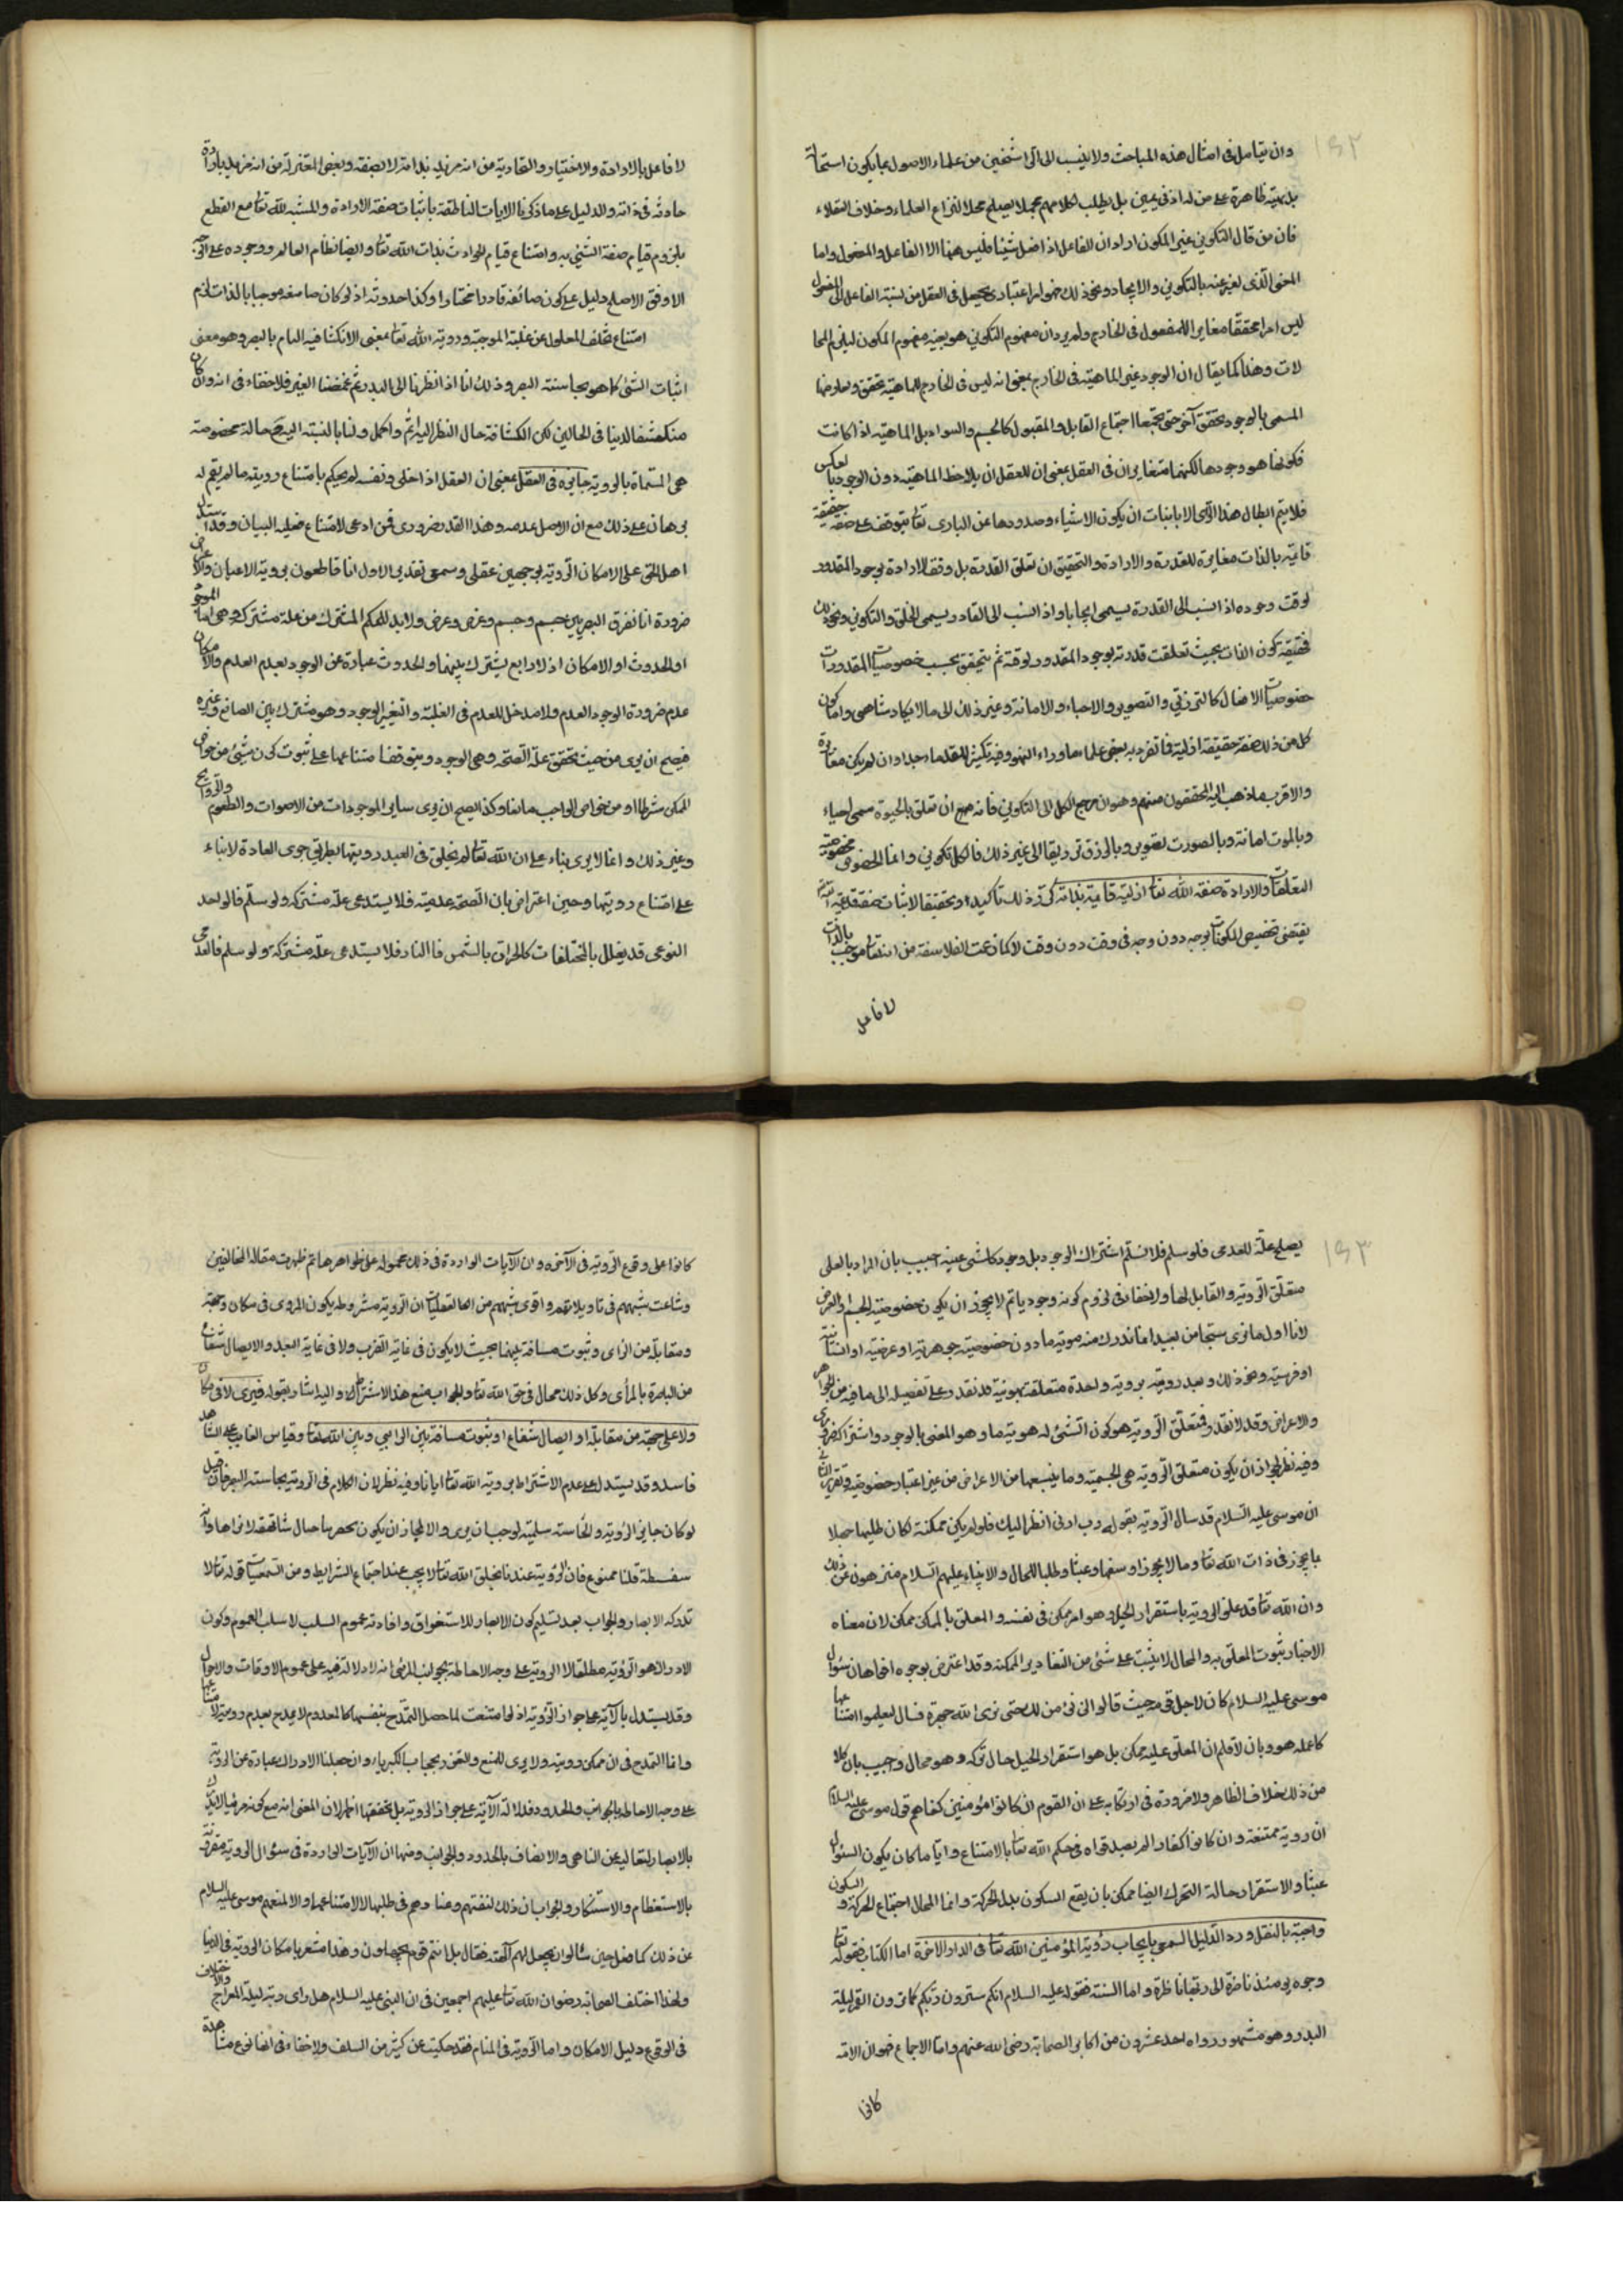 ١٤٢
وان يتامل فى امثال هذه المباحث ولا ينسب الى الراسخين من علماء الاصول ما يكون استحالة
بديهية ظاهرة على من له ادنى تميز بل يطلب لكلامهم محملا يصلح محلا لنزاع العلماء وخلاف العقلاء
فان من قال التكوين عين المكون اراد ان الفاعل اذا فعل شيئا فليس ههنا الا الفاعل والمفعول واما
المعنى الذى يعبر عنه بالتكوين والايجاد ونحو ذلك فهو امر اعتبارى يحصل فى العقل من نسبة الفاعل الى المفعول
ليس امرا محققا مغايرا للمفعول فى الخارج ولم يرد ان مفهوم التكوين هو بعينه مفهوم المكون ليلزم المحا
لات وهذا كما يقال ان الوجود عين الماهية فى الخارج بمعنى انه ليس فى الخارج للماهية تحقق ولعارضها
المسمى بالوجود تحقق آخر حتى يجتمعا اجتماع القابل والمقبول كالجسم والسواد بل الماهية اذا كانت
فكونها هو وجودها لكنهما متغايران فى العقل بمعنى ان للعقل ان يلاحظ الماهية دون الوجود وبالعكس
فلا يتم ابطال هذا الراى الا باثبات ان يكون الاشياء وصدورها عن البارى تعا يتوقف على صفة حقيقية
قائمة بالذات مغايرة للقدرة والارادة والتحقيق ان تعلق القدرة بل وفق الارادة بوجود المقدور
لوقت وجوده اذا انسب الى القدرة يسمى ايجابا واذا انسب الى القادر يسمى الخلق والتكوين ونحو ذلك
فحقيقته كون الذات بحيث تعلقت قدرته بوجود المقدور لوقته ثم يتحقق بحسب خصوصيات المقدورات
خصوصيات الافعال كالترزيق والتصوير والاحياء والاماتة وغير ذلك الى ما لا يكاد يتناهى واما كون
كل من ذلك صفة حقيقة ازلية فما تفرد به بعض علماء ما وراء النهر وفيه تكثير للقدماء جدا وان لم يكن مغايرة
والاقرب ما ذهب اليه المحققون منهم وهو ان مرجع الكل الى التكوين فانه ان تعلق بالحيوة سمى احياء
وبالموت اماتة وبالصورت تصوير وبالرزق ترزيقا الى غير ذلك فالكل تكوين وانما الخصوص بخصوصية
التعلقات والارادة صفة الله تعا ازلية قائمة بذاته كرر ذلك تأكيدا وتحقيقا لاثبات صفة قديمة لله تعا
يقتضى تخصيص المكونات بوجه دون وجه فى وقت دون وقت لا كما زعمت الفلاسفة من انه تعا موجب بالذات
لا فاعل
لا فاعل بالارادة والاختيار والنجارية من انه مريد بذاته لا بصفته وبعض المعتزلة من انه مريد بارادة
حادثه فى ذاته والدليل على ما ذكرنا الايات الناطقة باثبات صفة الارادة والمشية لله تعا مع القطع
بلزوم قيام صفة الشيئ به وامتناع قيام الحوادث بذات الله تعا وايضا نظام العالم ووجوده على الوجه
الاوفق الاصلح دليل على كون صانعه قادرا مختارا وكذا حدوثه اذ لو كان صانعه موجبا بالذات لزم
امتناع تخلف المعلول عن علته الموجبة ورؤية الله تعا بمعنى الانكشاف التام بالبصر وهو معنى
اثبات الشئ كما هو بحاسة البصر وذلك انا اذا نظرنا الى البدر ثم غمضنا العين فلا خفاء فى انه وان كان
منكشفا لدينا فى الحالين لكن انكشافه حال النظر اليه اتم واكمل ولنا بالنسبة اليه ح حالة مخصوصة
هى المسماة بالروية جايزه فى العقل بمعنى ان العقل اذا خلى ونفسه لم يحكم بامتناع رويته ما لم يقم له
برهان على ذلك مع ان الاصل عدمه وهذا القدر ضرورى فمن ادعى الامتناع فعليه البيان وقد استدل
اهل الحق على الامكان الروية بوجهين عقلى وسمعى تقدير الاول انا قاطعون بروية الاعيان والاعراض
ضرورة انا نفرق البصر بين جسم وجسم وعرض وعرض ولا بد للحكم المشترك من علة مشتركة وهى اما الوجود
او الحدوث او الامكان اذ لا رابع يشترك بينهما والحدوث عبارة عن الوجود بعدم العدم والامكان
عدم ضرورة الوجود العدم ولا مدخل للعدم فى العلية وا تعين الوجود وهو مشترك بين الصانع وغيره
فيصح ان يرى من حيث تحقق علة الصحة وهى الوجود ويتوقف امتناعها على ثبوت كون شيئ من خواص
الممكن شرطا او من خواص الواجب مانعا وكذا يصح ان يرى ساير الموجودات من الاصوات والطعوم والروايح
وغير ذلك وانما لا يرى بناء على ان الله تعا لم يخلق فى العبد رويتها بطريق جرى العادة لا بناء
على امتناع رويتها وحين اعترض بان الصحة عدمية فلا يستدعى علة مشتركه ولو سلم فالواحد
النوعى قد يعلل بالمختلفات كالحرارة بالشمس فا النار فلا يستدعى علة مشتركة ولو سلم فالعدمى
١٤٣
يصلح علة للعدمى فلو سلم فلا نسلم اشتراك الوجود بل وجود كل شئ عينه اجيب بان المراد بالعلى
متعلق الروية والقابل لها ولا خفاء فى لزوم كونه وجوديا ثم لا يجوز ان يكون خصوصية الجسم والعرض
لانا اول ما نرى شبحا من بعيد انما ندرك منه هوية ما دون خصوصية جوهرية او عرضية او انسانية
او فرسية ونحو ذلك وبعد رويته بروية واحدة متعلقة بهويته قد نقدر على تفصيله الى ما فيه من الجواهر
والاعراض وقد لا نقدر فمتعلق الروية هو كون الشئ له هوية ما وهو المعنى بالوجود واشتراكه ضرورى
وفيه نظر لجواز ان يكون متعلق الروية هى الجسمية وما يتبعها من الاعراض من غير اعتبار خصوصية وتقرير الثانى
ان موسى عليه السلام قد سال الروية بقوله رب ارنى انظر اليك فلو لم يكن ممكنة لكان طلبها جهلا
بما يجوز فى ذات الله تعا وما لا يجوز او سفها وعبثا وطلبا للمحال والانبياء عليهم السلام منزهون عن ذلك
وان الله تعا قد علق الروية باستقرار الجبل وهو امر ممكن فى نفسه والمعلق بالممكن ممكن لان معناه
الاخبار بثبوت المعلق به والمحال لا يثبت على شئ من التقادير الممكنة وقد اعترض بوجوه اقواها ان سؤال
موسى عليه السلام كان لاجل قومه حيث قالوا لن نؤمن لك حتى نرى الله جهرة فسال ليعلموا امتناعها
كما علمه هو وبان لا نسلم ان المعلق عليه ممكن بل هو استقرار الجبل حال تحركه وهو محال واجيب بان كلا
من ذلك خلاف الظاهر ولا ضرورة فى ارتكابه على ان القوم ان كانوا مؤمنين كفاهم قول موسى عليه السلام
ان روية ممتنعة وان كانوا كفارا لم يصدقواه فى حكم الله تعا بالامتناع وايا ما كان يكون السئوال
عبثا والاستقرار حالة التحرك ايضا ممكن بان يقع السكون بدل الحركة وانما المحال اجتماع الحركة والسكون
واجبة بالنقل ورد الدليل السمعى بايجاب رؤية المؤمنين الله تعا فى الدار الاخرة اما الكتاب فقوله تعا
وجوه يومئذ ناضرة الى ربها ناظرة واما السنة فقوله عليه السلام انكم سترون ربكم كما ترون القمر ليلة
البدر وهو مشهور رواه احد عشرون من اكابر الصحابة رضى الله عنهم واما الاجماع فهو ان الامة
كانوا
كانوا على وقوع الروية فى الآخره وان الآيات الواردة فى ذلك محمولة على ظواهرها ثم ظهرت مقالة المخالفين
وشاعت شبههم فى تاويلاتهم واقوى شبههم من العقليات ان الروية مشروطه يكون المروى فى مكان وجهة
ومقابلة من الراى وثبوت مسافة بينهما بحيث لا يكون فى غاية القرب ولا فى غاية البعد والاتصال شعاع
من الباصرة بالمرأى وكل ذلك محال فى حق الله تعا والجواب منع هذا الاشتراط واليه اشار بقوله فيرى لا فى مكان
ولا على جهة من مقابلة او اتصال شعاع او ثبوت مسافة بين الرائى وبين الله تعا وقياس الغايب على الشاهد
فاسد وقد يستدل على عدم الاشتراط بروية الله تعا ايانا وفيه نظر لان الكلام فى الروية بحاسة البصر فان قيل
لو كان جايز الرؤية والحاسة سليمة لوجب ان يرى والا لجاز ان يكون بحضرتنا جبال شاهقة لا نراها وانه
سفسطة قلنا ممنوع فان الرؤية عندنا بخلق الله تعا لا يجب عند اجتماع الشرايط ومن السمعيات قوله تعا لا
تدركه الابصار والجواب بعد تسليم كون الابصار للاستغراق وافادته عموم السلب لا سلب العموم وكون
الادراك هو الرؤية مطلقا لا الروية على وجه الاحاطة بجوانب المرئى انه لا دلالة فيه على عموم الاوقات والاحوال
وقد يستدل بالآية على جواز الرؤية اذ لو امتنعت لما حصل التمدح بنفيها كالمعدوم لا يمدح بعدم رويته لامتناعها
وانما التمدح فى ان ممكن رويته ولا يرى للمنع والتعزز بحجاب الكبرياء وان جعلنا الادراك عبارة عن الروية
على وجه الاحاطة بالجوانب والحدود فدلالة الآية على جواز الروية بل تحققها اظهر لان المعنى انه مع كونه مرئيا لا يدرك
بالابصار لتعاليه عن التناهى والاتصاف بالحدود والجوانب ومنها ان الآيات الواردة فى سئوال الروية مقرونة
بالاستعظام والاستنكار والجواب ان ذلك لتعنتهم وعنادهم فى طلبها لا لامتناعها والا لمنعهم موسى عليه السلام
عن ذلك كما فعل حين سئالوا ان يجعل لهم آلهة فقال بل انتم قوم تجهلون وهذا مشعر بامكان الروية فى الدنيا
ولهذا اختلف الصحابة رضوان الله تعا عليهم اجمعين فى ان النبى عليه السلام هل راى ربه ليلة المعراج والاختلاف
فى الوقوع دليل الامكان واما الروية فى المنام فقد حكيت عن كثير من السلف ولا خفاء فى انها نوع مشاهدة